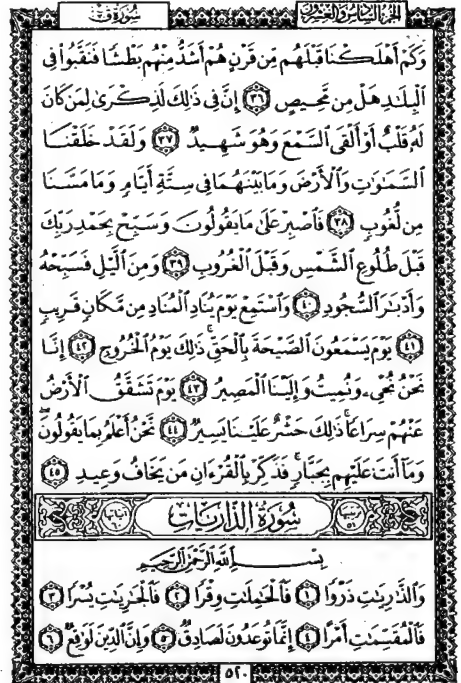 الجزء السادس والعشرون سورة ق
وَكَمْ أَهْلَكْنَا قَبْلَهُم مِّن قَرْنٍ هُمْ أَشَدُّ مِنْهُم بَطْشًا فَنَقَّبُوا۟ فِى
ٱلْبِلَٰدِ هَلْ مِن مَّحِيصٍ ٣٦ إِنَّ فِى ذَٰلِكَ لَذِكْرَىٰ لِمَن كَانَ
لَهُۥ قَلْبٌ أَوْ أَلْقَى ٱلسَّمْعَ وَهُوَ شَهِيدٌ ٣٧ وَلَقَدْ خَلَقْنَا
ٱلسَّمَٰوَٰتِ وَٱلْأَرْضَ وَمَا بَيْنَهُمَا فِى سِتَّةِ أَيَّامٍ وَمَا مَسَّنَا
مِن لُّغُوبٍ ٣٨ فَٱصْبِرْ عَلَىٰ مَا يَقُولُونَ وَسَبِّحْ بِحَمْدِ رَبِّكَ
قَبْلَ طُلُوعِ ٱلشَّمْسِ وَقَبْلَ ٱلْغُرُوبِ ٣٩ وَمِنَ ٱلَّيْلِ فَسَبِّحْهُ
وَأَدْبَٰرَ ٱلسُّجُودِ ٤٠ وَٱسْتَمِعْ يَوْمَ يُنَادِ ٱلْمُنَادِ مِن مَّكَانٍ قَرِيبٍ
٤١ يَوْمَ يَسْمَعُونَ ٱلصَّيْحَةَ بِٱلْحَقِّ ۚ ذَٰلِكَ يَوْمُ ٱلْخُرُوجِ ٤٢ إِنَّا
نَحْنُ نُحْىِۦ وَنُمِيتُ وَإِلَيْنَا ٱلْمَصِيرُ ٤٣ يَوْمَ تَشَقَّقُ ٱلْأَرْضُ
عَنْهُمْ سِرَاعًا ۚ ذَٰلِكَ حَشْرٌ عَلَيْنَا يَسِيرٌ ٤٤ نَّحْنُ أَعْلَمُ بِمَا يَقُولُونَ ۖ
وَمَآ أَنتَ عَلَيْهِم بِجَبَّارٍ ۖ فَذَكِّرْ بِٱلْقُرْءَانِ مَن يَخَافُ وَعِيدِ ٤٥
سُورَةُ الذَّارِيَاتِ
بِسْمِ ٱللَّهِ ٱلرَّحْمَٰنِ ٱلرَّحِيمِ
وَٱلذَّٰرِيَٰتِ ذَرْوًا ١ فَٱلْحَٰمِلَٰتِ وِقْرًا ٢ فَٱلْجَٰرِيَٰتِ يُسْرًا ٣
فَٱلْمُقَسِّمَٰتِ أَمْرًا ٤ إِنَّمَا تُوعَدُونَ لَصَادِقٌ ٥ وَإِنَّ ٱلدِّينَ لَوَٰقِعٌ ٦
٥٢٠